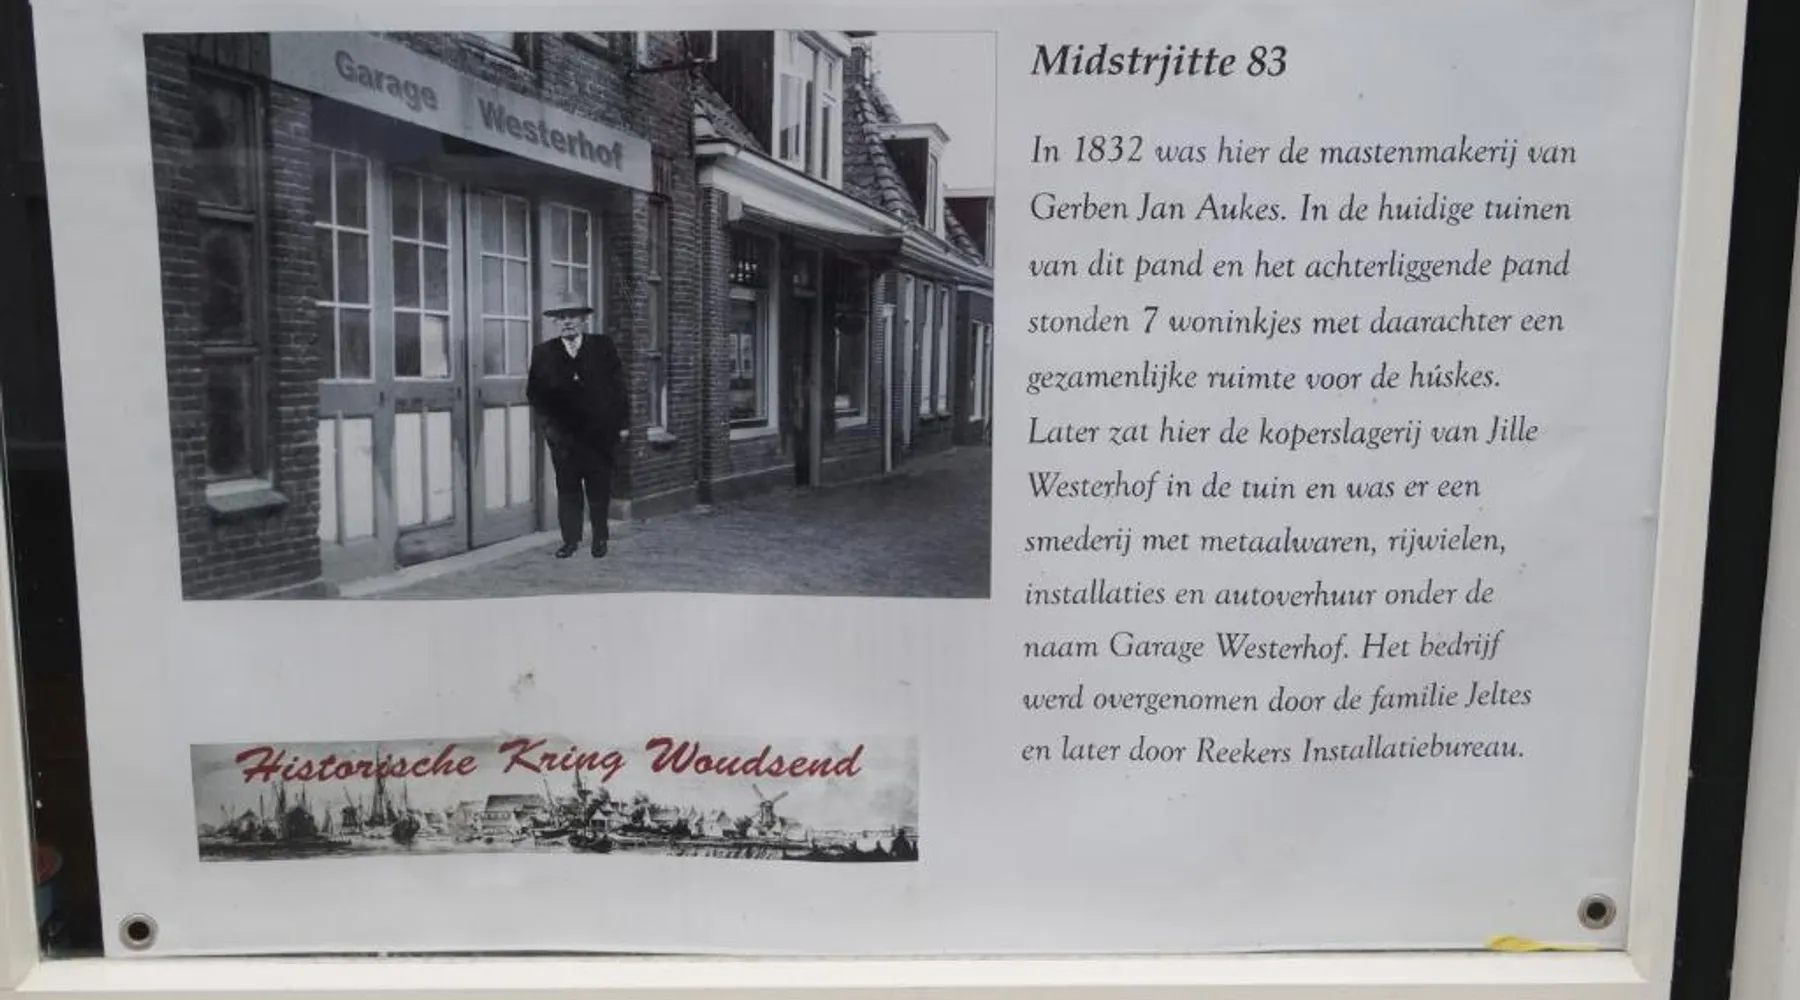 Garage Westerhof
Midstrjitte 83
In 1832 was hier de mastenmakerij van
Gerben Jan Aukes. In de huidige tuinen
van dit pand en het achterliggende pand
stonden 7 woninkjes met daarachter een
gezamenlijke ruimte voor de húskes.
Later zat hier de koperslagerij van Jille
Westerhof in de tuin en was er een
smederij met metaalwaren, rijwielen,
installaties en autoverhuur onder de
naam Garage Westerhof. Het bedrijf
werd overgenomen door de familie Jeltes
en later door Reekers Installatiebureau.
Historische Kring Woudsend